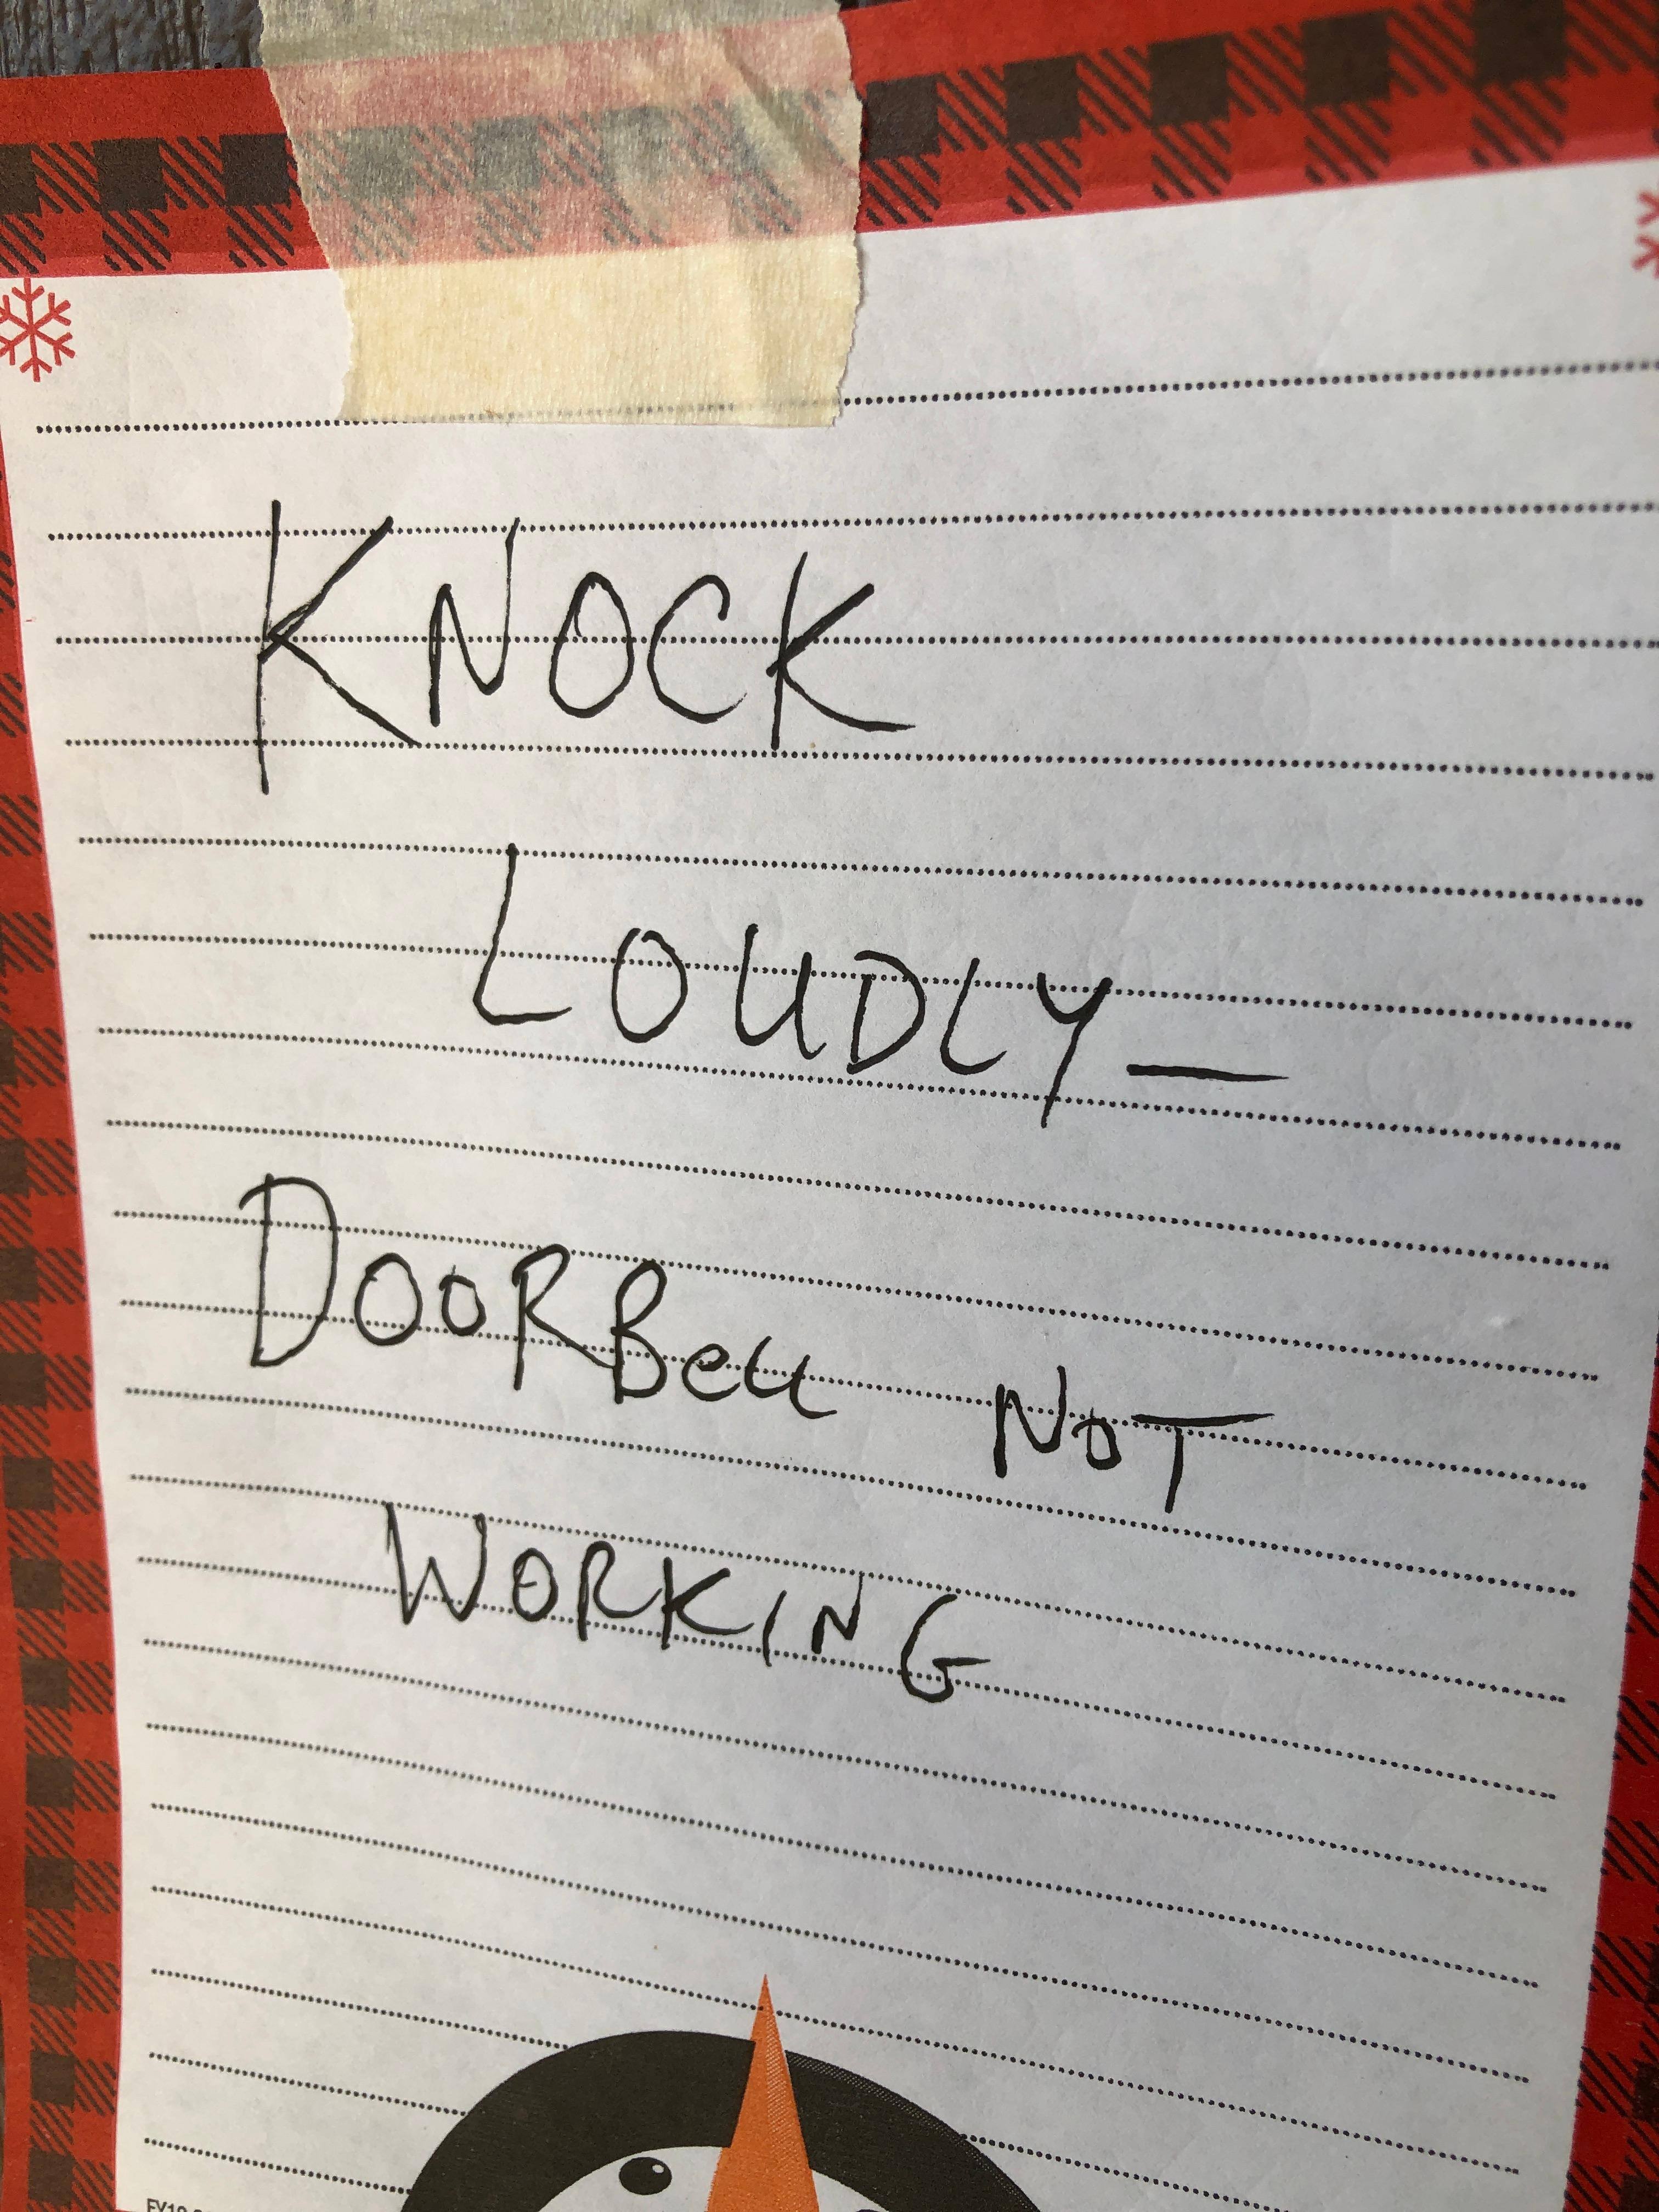 KNOCK
LOUDLY—
DOORBell NOT
WORKING